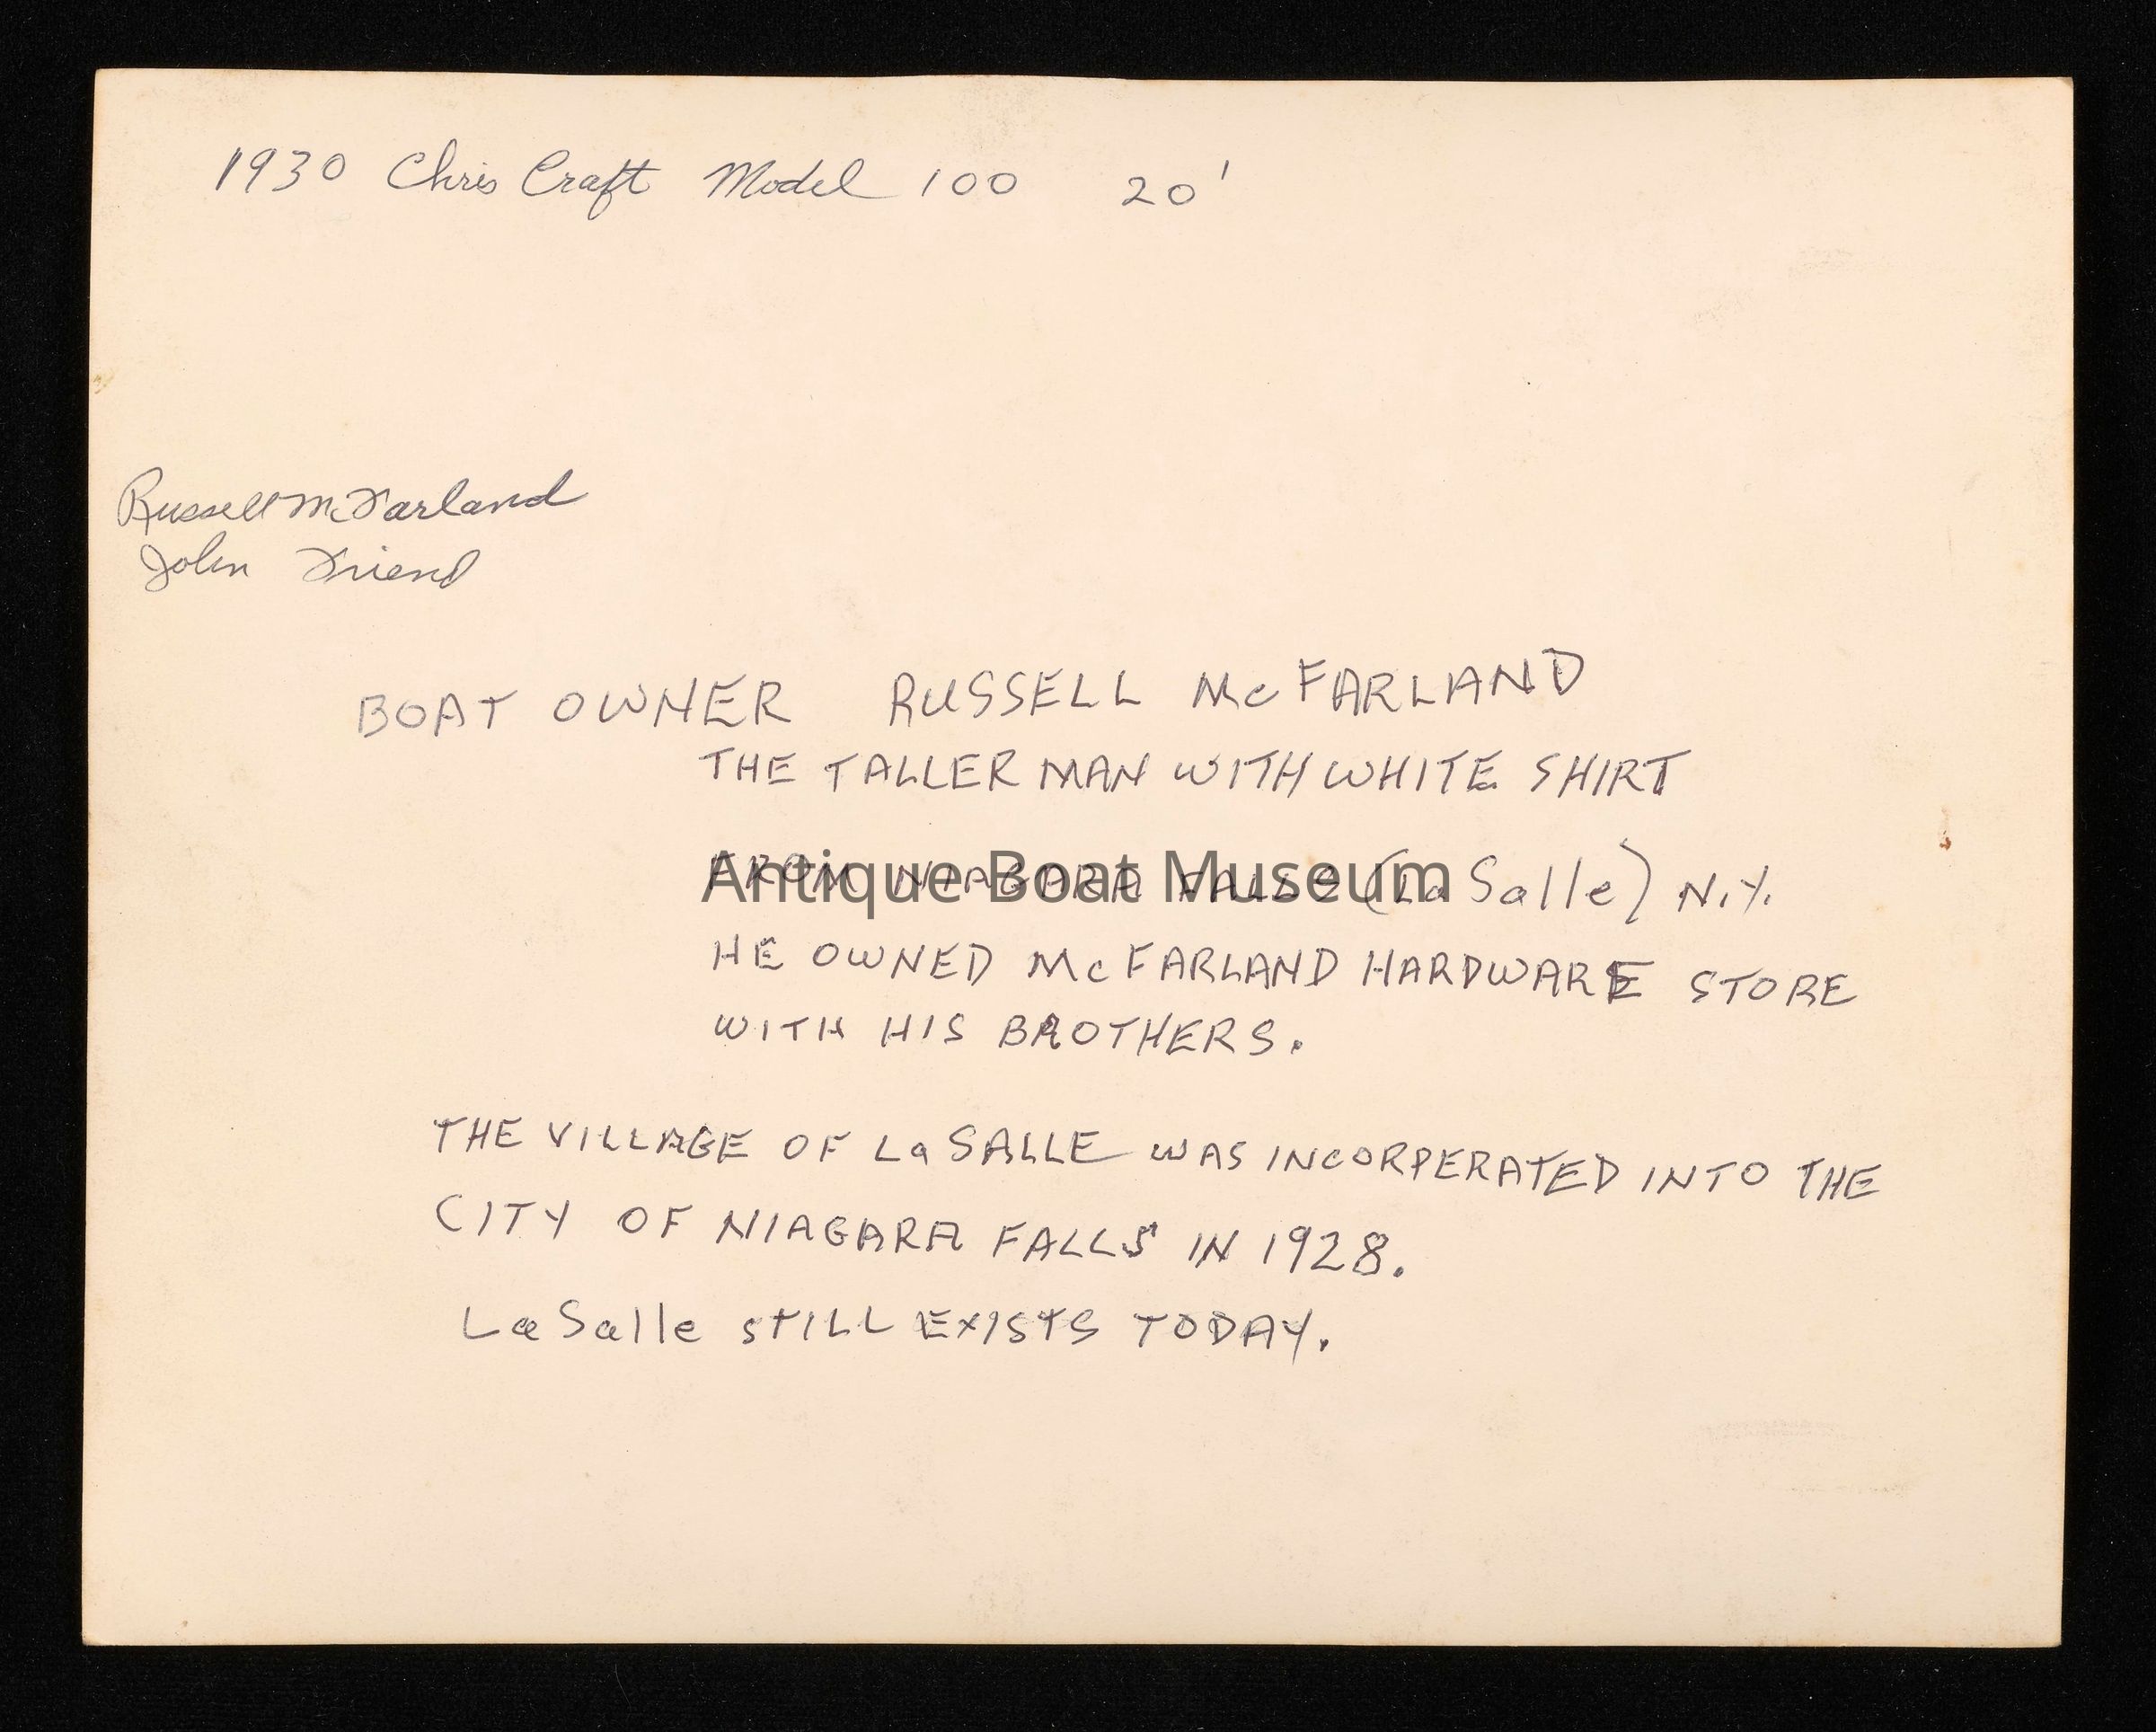 1930 Chris Craft Model 100 20'
Russell McFarland
John Friend
BOAT OWNER RUSSELL McFARLAND
THE TALLER MAN WITH WHITE SHIRT
FROM NIAGARA FALLS (LaSalle) N.Y.
Antique Boat Museum
HE OWNED McFARLAND HARDWARE STORE
WITH HIS BROTHERS.
THE VILLAGE OF LaSALLE WAS INCORPERATED INTO THE
CITY OF NIAGARA FALLS IN 1928.
LaSalle STILL EXISTS TODAY.